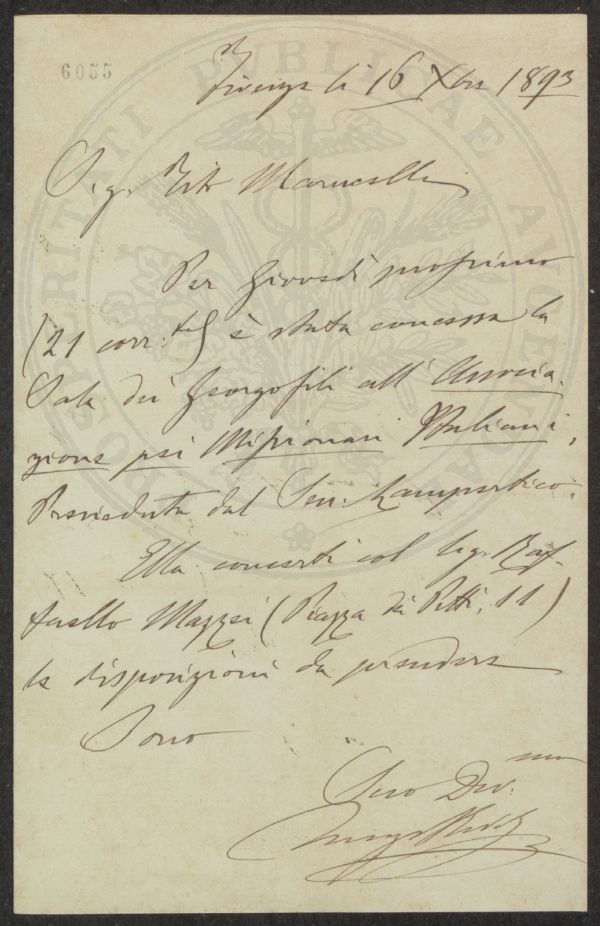 6055
PROSPERITATI PUBLICAE AUGENDAE
Firenze li 16 Xbre 1893
Sig. Tito Marucelli
Per Giovedì prossimo
(21 corr.te) è stata concessa la
Sala dei Georgofili all' Associa-
zione pei Missionari Italiani,
Presieduta dal Sen. Lampertico.
Ella concerti col Sig. Raf-
faello Mazzei (Piazza dei Pitti, 11)
le disposizioni da prendere
Sono
Suo Dev.mo